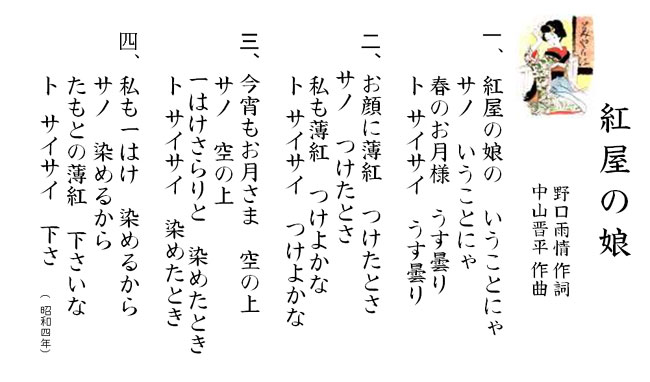 紅屋の娘
野口雨情 作詞
中山晋平 作曲
一、紅屋の娘の いうことにゃ
サノ いうことにゃ
春のお月様 うす曇り
ト サイサイ うす曇り
二、お顔に薄紅 つけたとさ
サノ つけたとさ
私も薄紅 つけよかな
ト サイサイ つけよかな
三、今宵もお月さま 空の上
サノ 空の上
一はけさらりと 染めたとき
ト サイサイ 染めたとき
四、私も一はけ 染めるから
サノ 染めるから
たもとの薄紅 下さいな
ト サイサイ 下さ
(昭和四年)